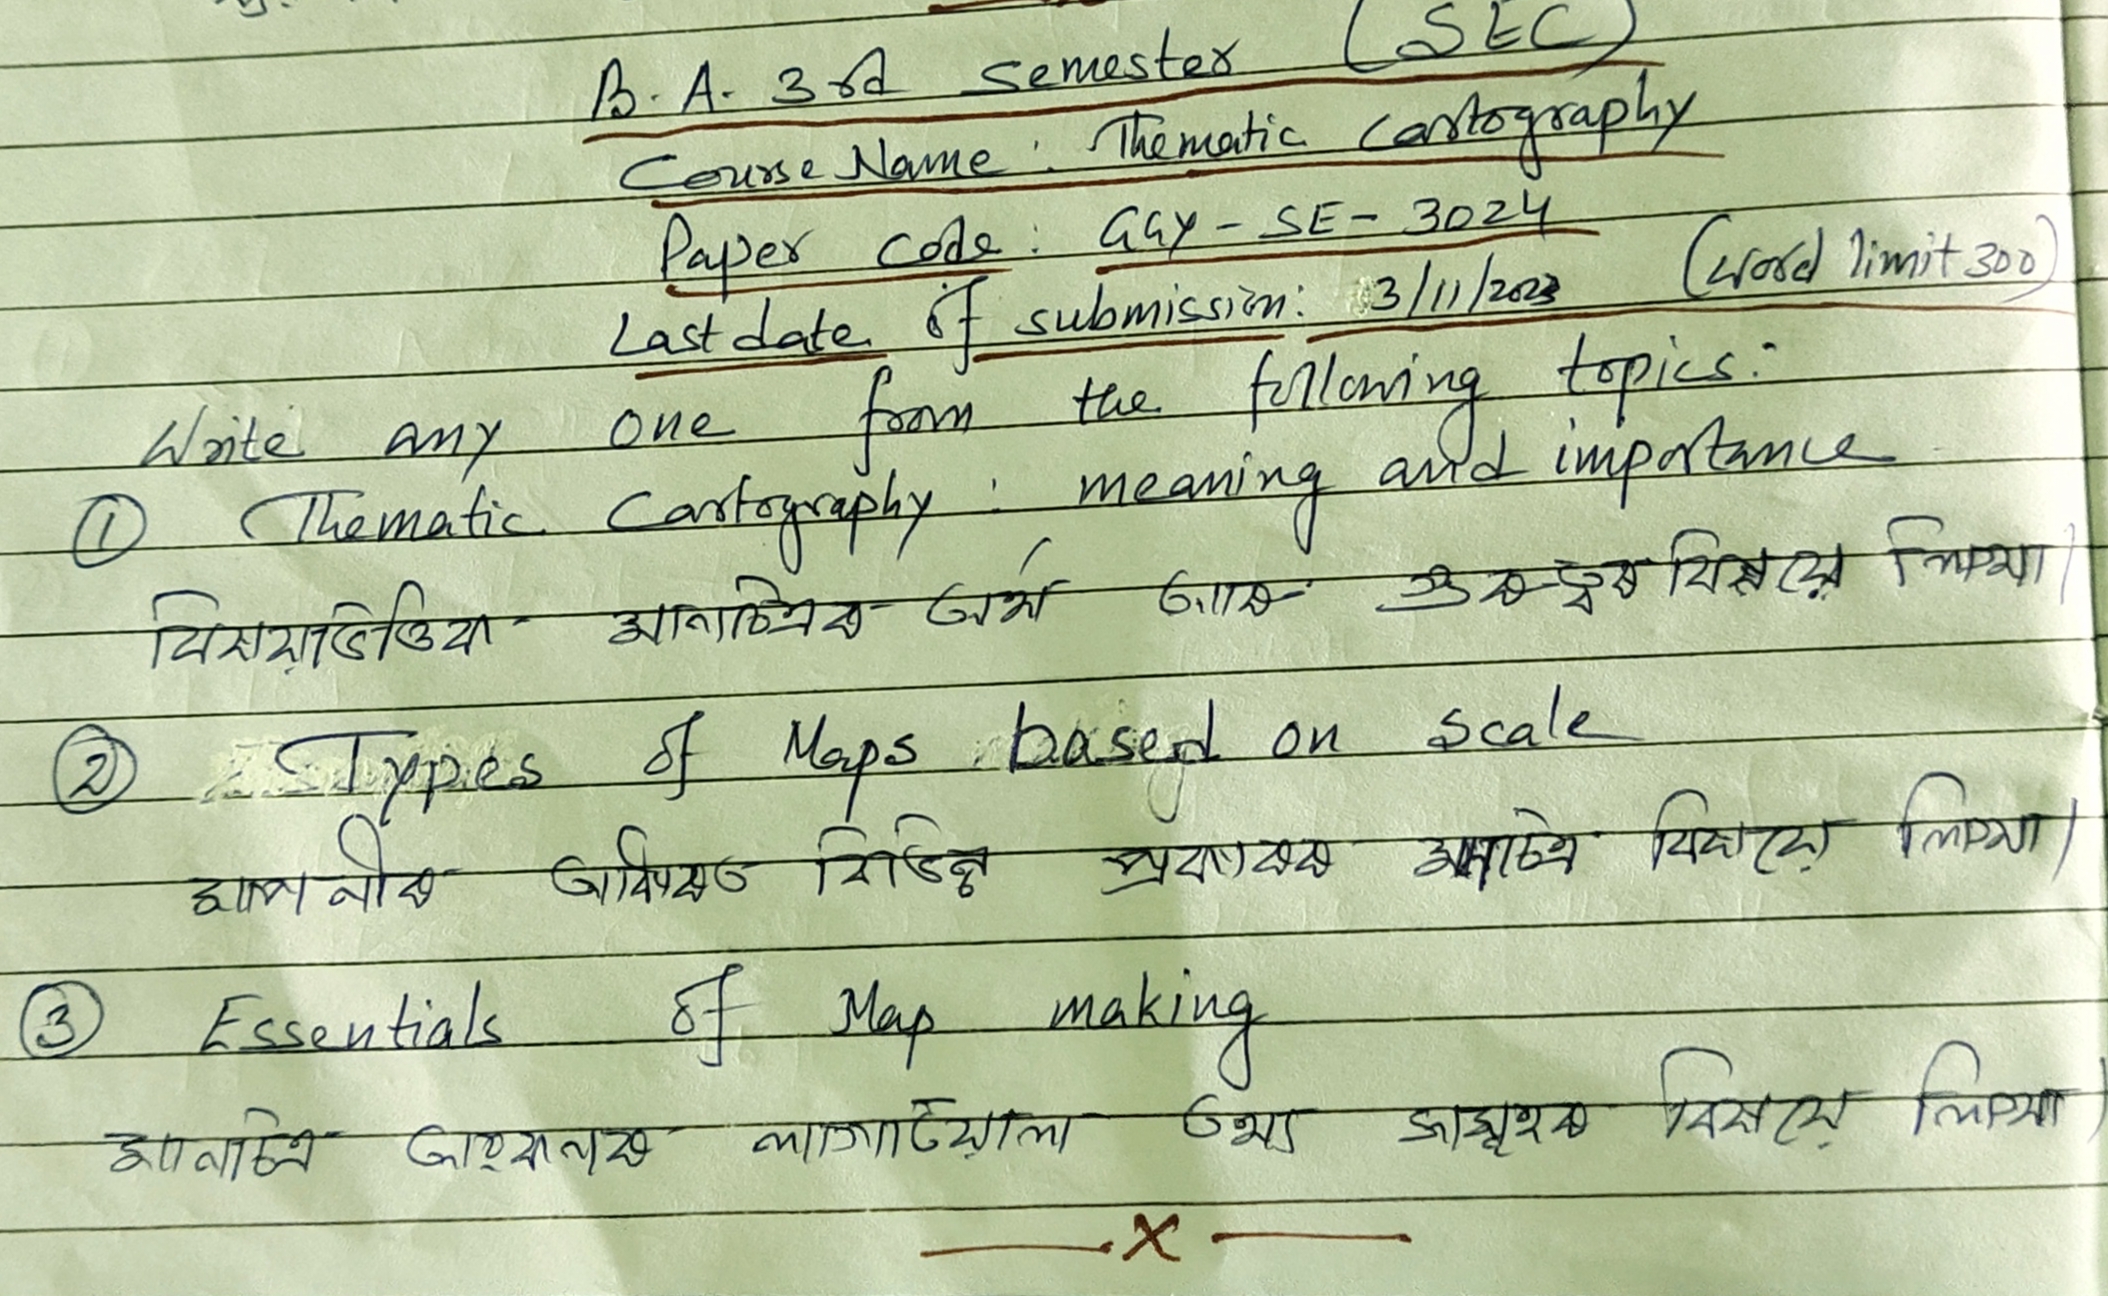 B. A. 3rd Semester (SEC)
Course Name : Thematic Cartography
Paper code : GGY - SE - 3024
(word limit 300)
Last date of submission : 3/11/2023
Write any one from the following topics :
① Thematic Cartography : meaning and importance
বিষয়ভিত্তিক মানচিত্ৰৰ অৰ্থ আৰু গুৰুত্বৰ বিষয়ে লিখা।
② Types of Maps based on scale
মাপনীৰ আধাৰত বিভিন্ন প্ৰকাৰৰ মানচিত্ৰ বিষয়ে লিখা।
③ Essentials of Map making
মানচিত্ৰ অংকনৰ লাগতিয়াল তথ্য সমূহৰ বিষয়ে লিখা।
X